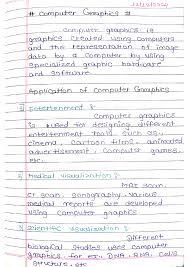 # Computer Graphics #
Computer graphics is
graphics created using computers
and the representation of image
data by a computer by using
specialized graphic hardware
and software.
Application of Computer Graphics
Entertenment :-
Computer graphics
is used for designing different
entertenment tools such as,
cinema, cartoon films, animated
advertisement, computer games,
etc.
Medical visualization :-
MRI scan,
CT scan, sonography, various
medical reports are developed
using computer graphics
Scientific visualization :-
Different
biological studies uses computer
graphics for ex:- DNA, RNA, Cells
structure, etc